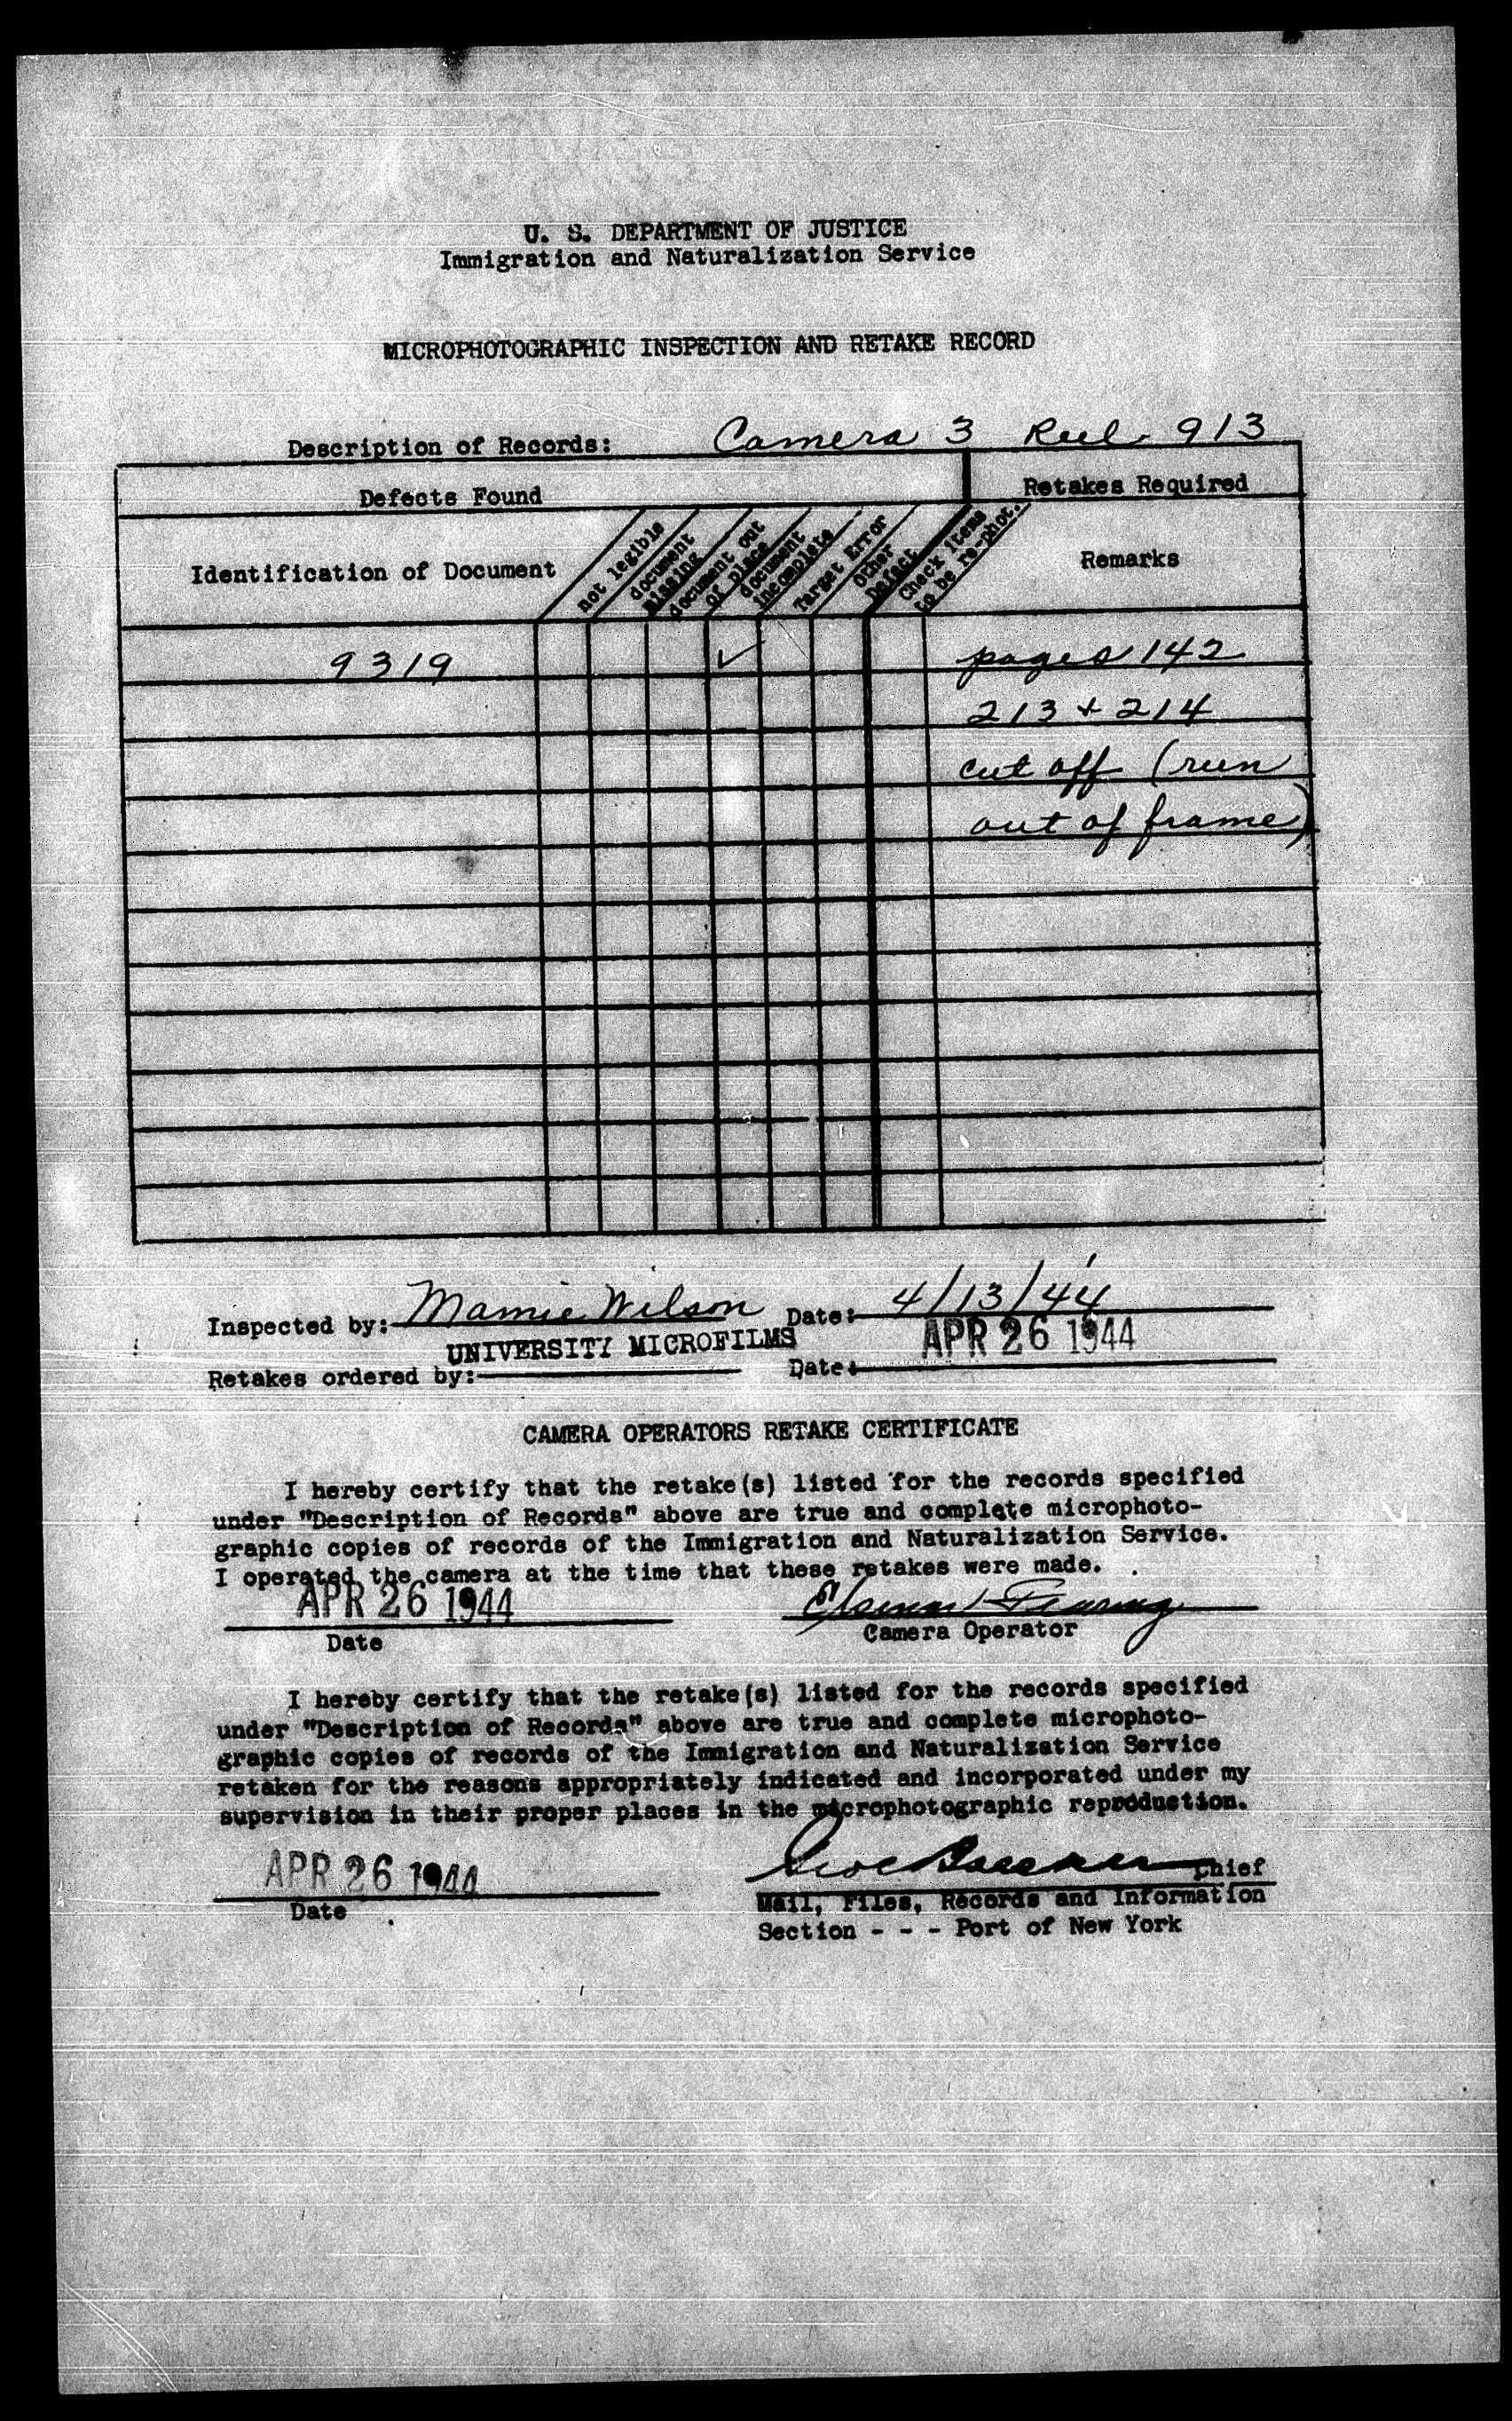 U. S. DEPARTMENT OF JUSTICE
Immigration and Naturalization Service
MICROPHOTOGRAPHIC INSPECTION AND RETAKE RECORD
Description of Records: Camera 3 Reel 913
Defects Found
Retakes Required
Identification of Document
not legible
document missing
document out of place
document incomplete
Target Error
Other Defect
Check items to be re-phot.
Remarks
9319 ✓ pages 142
213 + 214
cut off (run
out of frame)
Inspected by: Mamie Wilson Date: 4/13/44
UNIVERSITY MICROFILMS APR 26 1944
Retakes ordered by: Date:
CAMERA OPERATORS RETAKE CERTIFICATE
I hereby certify that the retake(s) listed for the records specified
under "Description of Records" above are true and complete microphoto-
graphic copies of records of the Immigration and Naturalization Service.
I operated the camera at the time that these retakes were made.
APR 26 1944
Date
Camera Operator
I hereby certify that the retake(s) listed for the records specified
under "Description of Records" above are true and complete microphoto-
graphic copies of records of the Immigration and Naturalization Service
retaken for the reasons appropriately indicated and incorporated under my
supervision in their proper places in the microphotographic reproduction.
APR 26 1944 Chief
Date
Mail, Files, Records and Information
Section - - - Port of New York